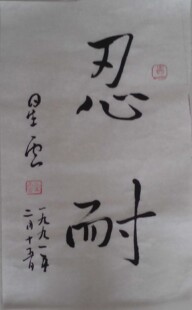 忍耐
星雲
一九九一年
二月十五日